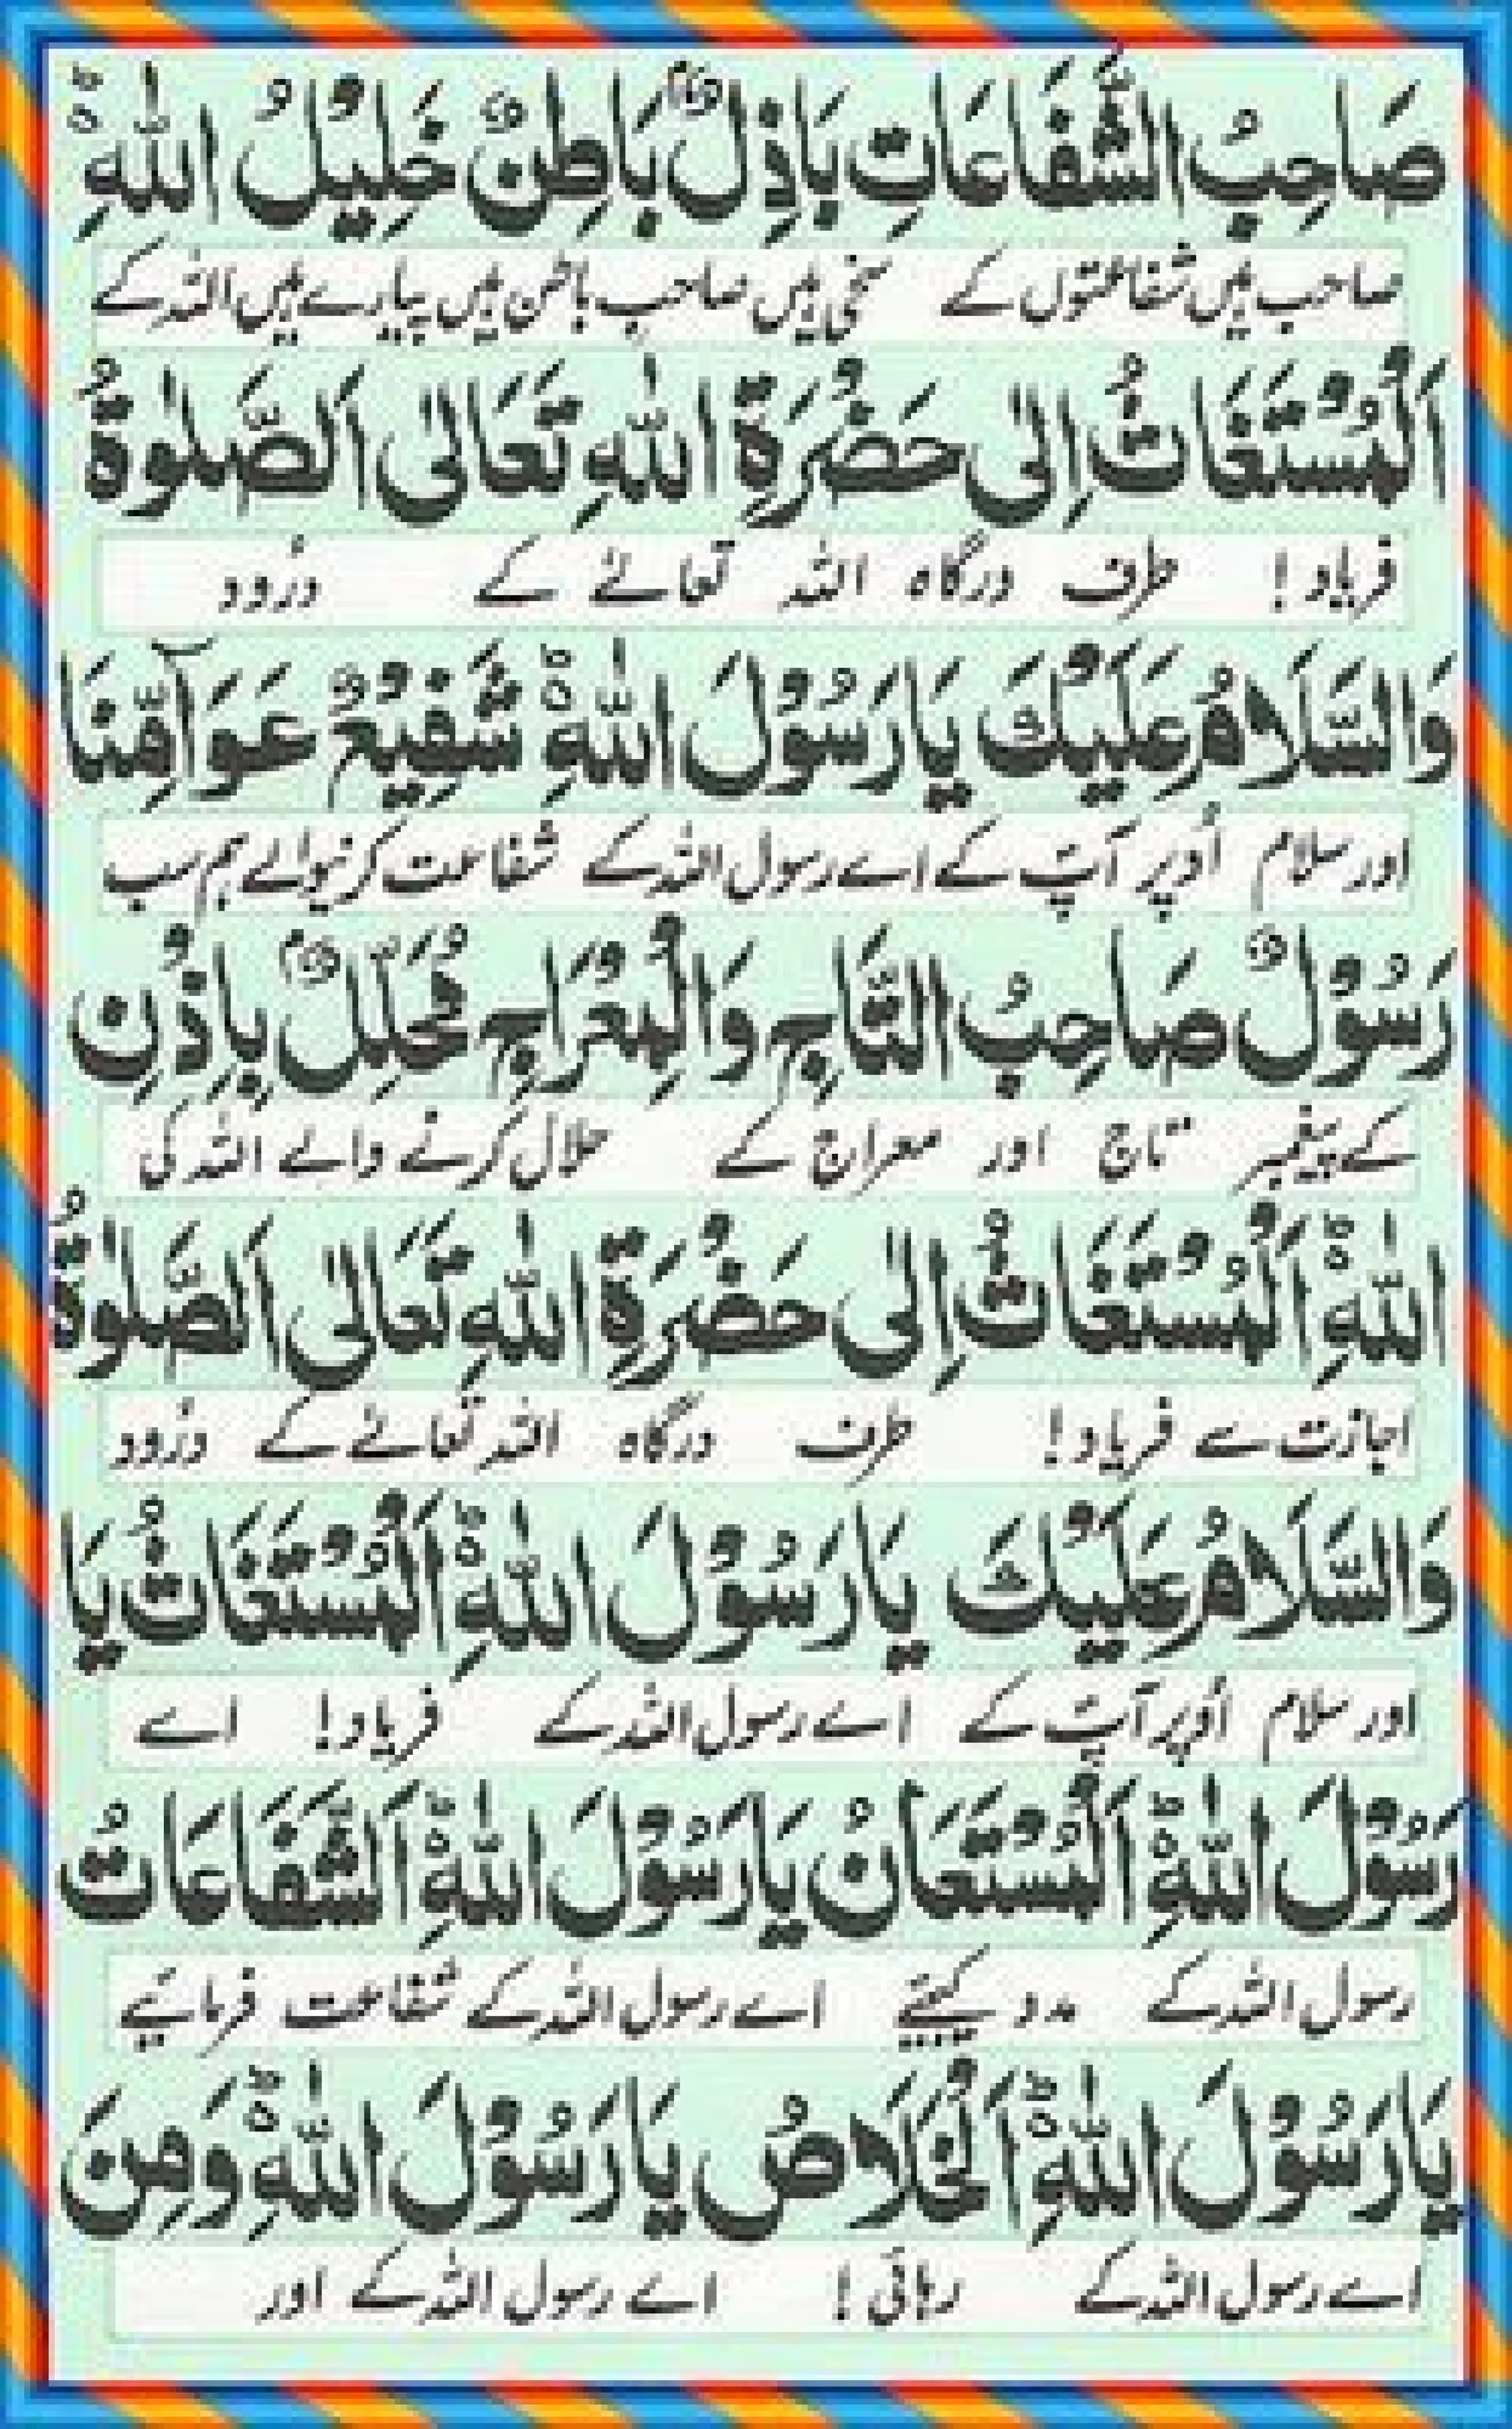 صَاحِبُ الشَّفَاعَاتِ بَاذِلٌ بَاطِنٌ خَلِيْلُ اللّٰهِ ؕ
صاحب ہیں شفاعتوں کے سخی ہیں صاحب باطن ہیں پیارے ہیں اللہ کے
اَلْمُسْتَغَاثُ اِلٰى حَضْرَةِ اللّٰهِ تَعَالٰى اَلصَّلٰوةُ
فریاد! طرف درگاہ اللہ تعالےٰ کے درُود
وَالسَّلَامُ عَلَيْكَ يَا رَسُوْلَ اللّٰهِ ؕ شَفِيْعٌ عَوَآمِّنَا
اور سلام اُوپر آپؐ کے اے رسول اللہ کے شفاعت کرنیوالے ہم سب
رَسُوْلٌ صَاحِبُ التَّاجِ وَالْمِعْرَاجِ مُحَلِّلٌ بِاِذْنِ
کے پیغمبر تاج اور معراج کے حلال کرنے والے اللہ کی
اللّٰهِ ؕ اَلْمُسْتَغَاثُ اِلٰى حَضْرَةِ اللّٰهِ تَعَالٰى اَلصَّلٰوةُ
اجازت سے فریاد! طرف درگاہ اللہ تعالےٰ کے درُود
وَالسَّلَامُ عَلَيْكَ يَا رَسُوْلَ اللّٰهِ ؕ اَلْمُسْتَغَاثُ يَا
اور سلام اُوپر آپؐ کے اے رسول اللہ کے فریاد! اے
رَسُوْلَ اللّٰهِ ؕ اَلْمُسْتَعَانُ يَا رَسُوْلَ اللّٰهِ ؕ اَلشَّفَاعَاتُ
رسول اللہ کے مدد کیجئے اے رسول اللہ کے شفاعت فرمائیے
يَا رَسُوْلَ اللّٰهِ ؕ اَلْخَلَاصُ يَا رَسُوْلَ اللّٰهِ ؕ وَمِنَ
اے رسول اللہ کے رہائی! اے رسول اللہ کے اور